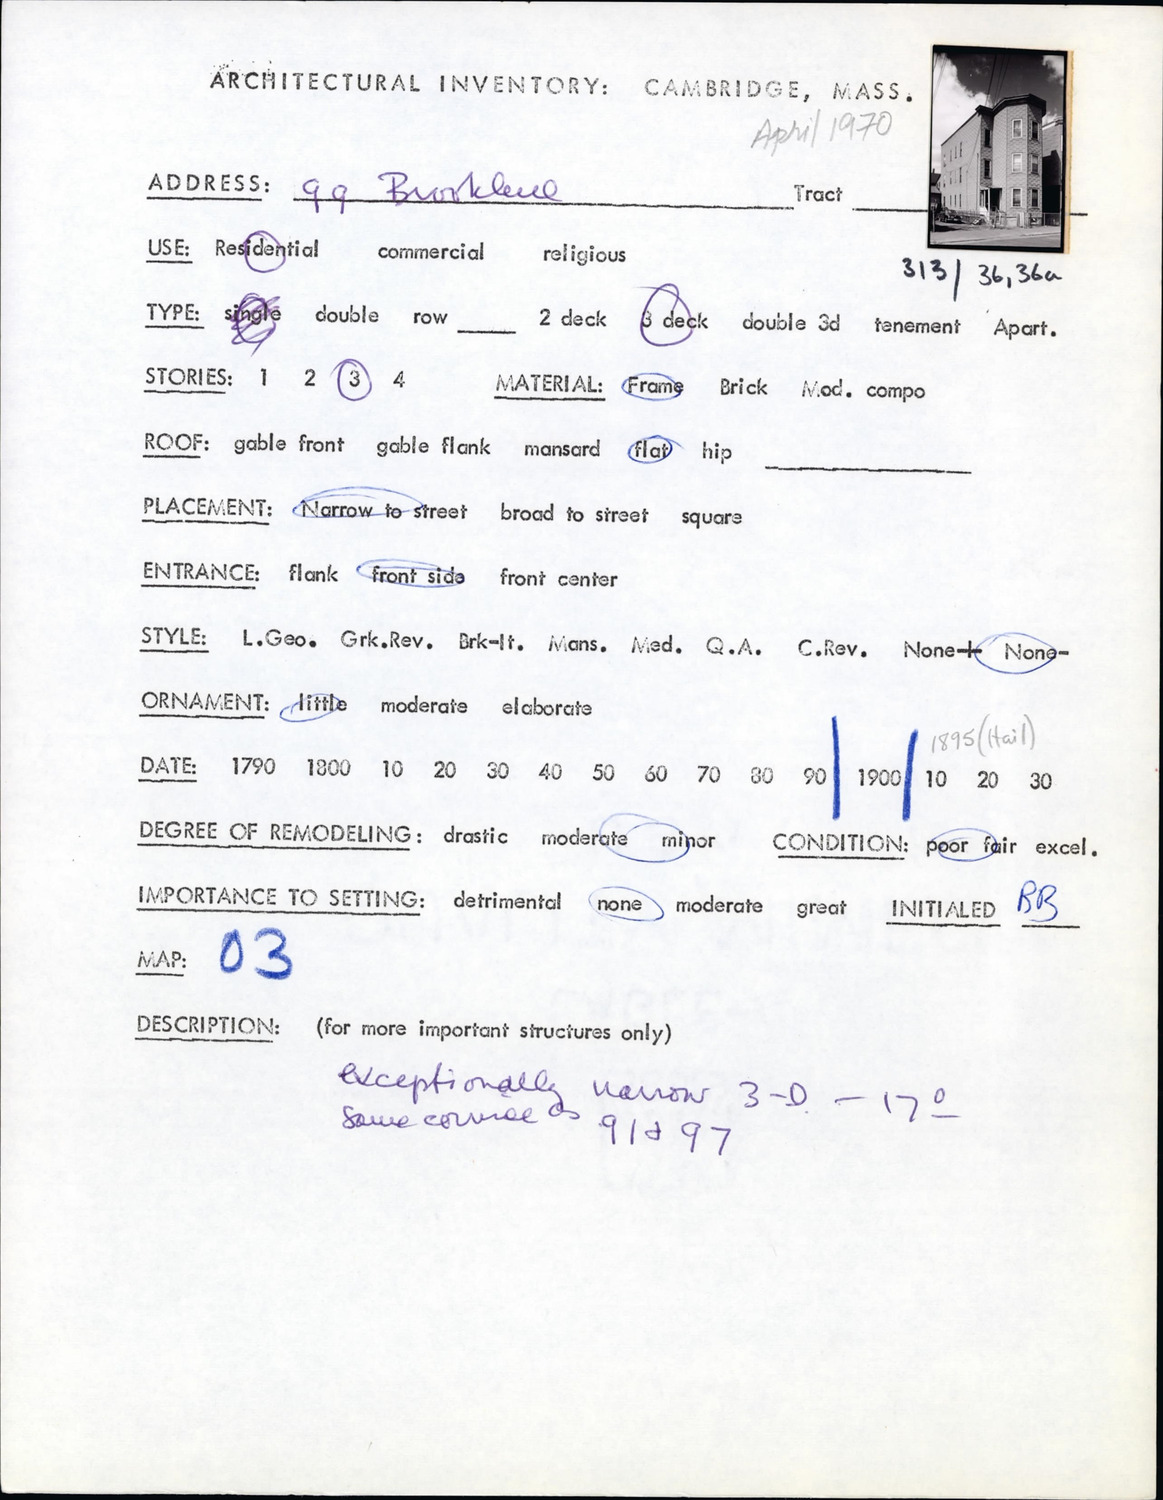 ARCHITECTURAL INVENTORY: CAMBRIDGE, MASS.
April 1970
ADDRESS: 99 Brookline Tract
313/ 36,36a
USE: Residential commercial religious
TYPE: single double row ____ 2 deck 3 deck double 3d tenement Apart.
STORIES: 1 2 3 4 MATERIAL: Frame Brick Mod. compo
ROOF: gable front gable flank mansard flat hip ____
PLACEMENT: Narrow to street broad to street square
ENTRANCE: flank front side front center
STYLE: L.Geo. Grk.Rev. Brk-It. Mans. Med. Q.A. C.Rev. None+ None-
ORNAMENT: little moderate elaborate
1895 (Hail)
DATE: 1790 1800 10 20 30 40 50 60 70 80 90 1900 10 20 30
DEGREE OF REMODELING: drastic moderate minor CONDITION: poor fair excel.
IMPORTANCE TO SETTING: detrimental none moderate great INITIALED BB
MAP: 03
DESCRIPTION: (for more important structures only)
exceptionally narrow 3-D - 17º
same cornice as 91 & 97